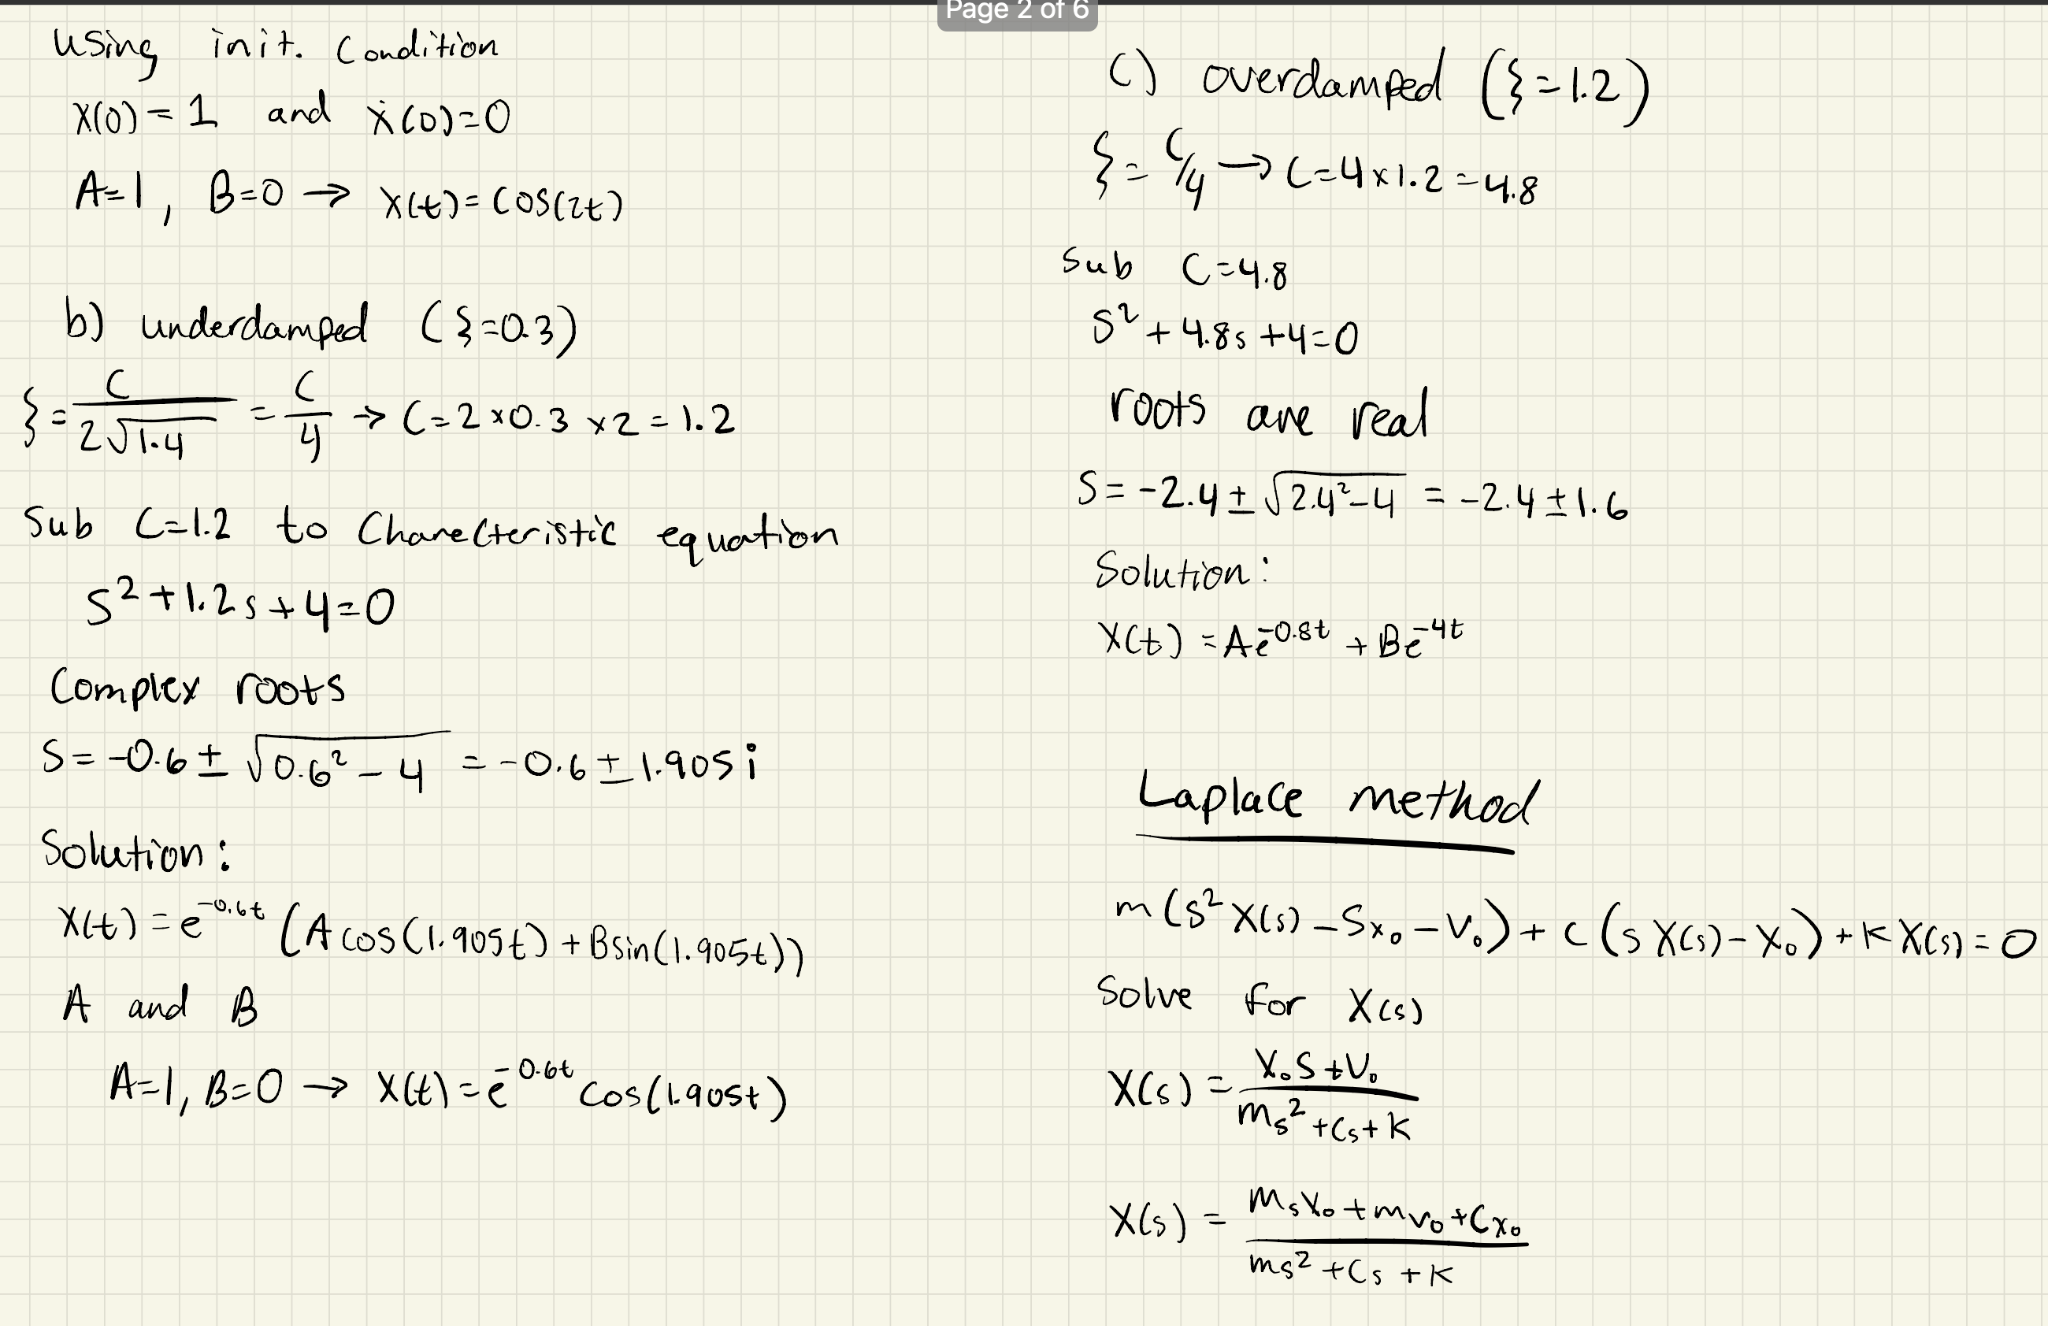 Page 2 of 6
using init. Condition
X(0) = 1 and ẋ(0)=0
A=1, B=0 → X(t)= COS(2t)
b) underdamped (ξ=0.3)
ξ = C / 2√1·4 = C/4 → C=2×0.3×2=1.2
Sub C=1.2 to Charecteristic equation
S²+1.2s+4=0
Complex roots
S= -0.6 ± √0.6²-4 = -0.6±1.905i
Solution:
X(t) = e^-0.6t (A cos(1.905t) + Bsin(1.905t))
A and B
A=1, B=0 → X(t) = e^-0.6t cos(1.905t)
C) overdamped (ξ=1.2)
ξ = C/4 → C=4×1.2=4.8
Sub C=4.8
S²+4.8s+4=0
roots are real
S= -2.4± √2.4²-4 = -2.4±1.6
Solution:
X(t) = Ae^-0.8t + Be^-4t
Laplace method
m(s²X(s) - Sx₀ - V₀) + c(sX(s) - X₀) + kX(s) = 0
Solve for X(s)
X(s) = X₀S+V₀ / ms²+Cs+k
X(s) = msX₀+mv₀+Cx₀ / ms²+Cs+k